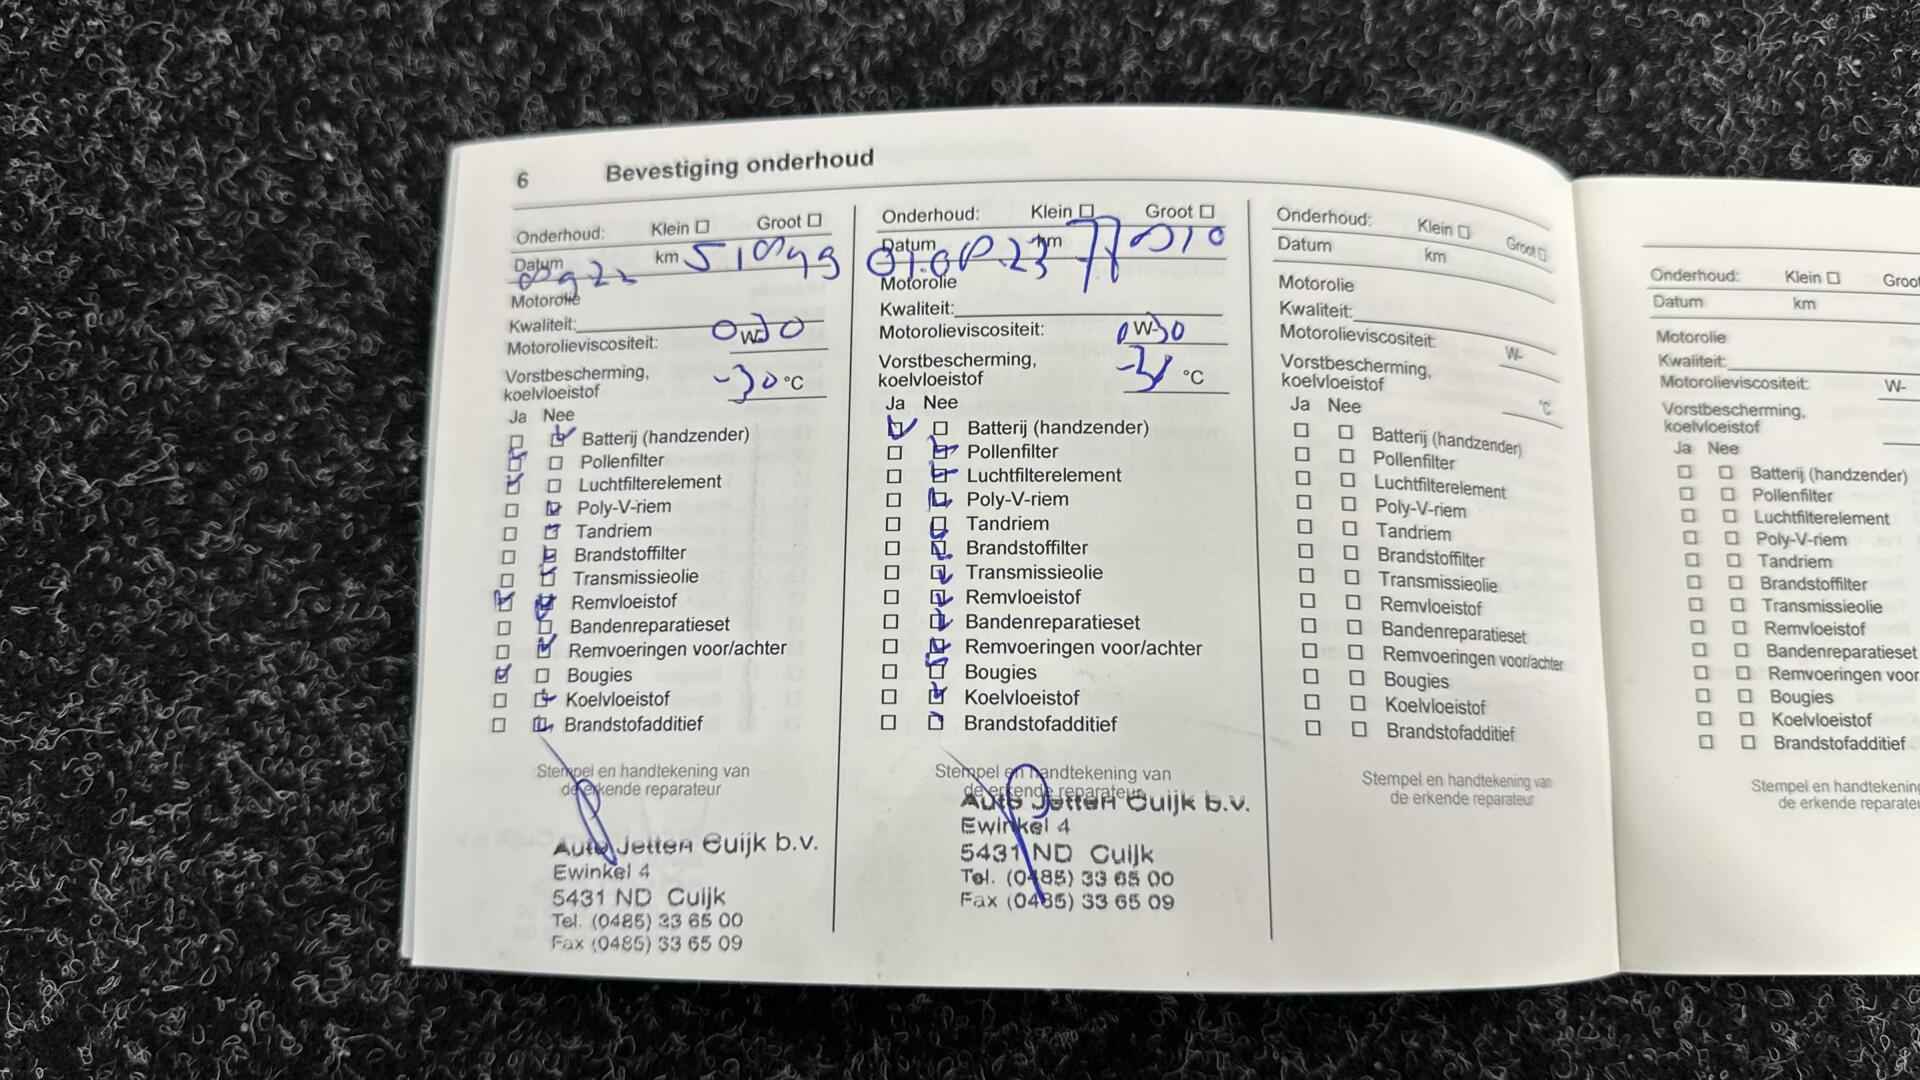 6 Bevestiging onderhoud
Onderhoud: Klein Groot
Datum km
Motorolie
Kwaliteit:
Motorolieviscositeit: 0W-30
Vorstbescherming,
koelvloeistof -30 °C
Ja Nee
Batterij (handzender)
Pollenfilter
Luchtfilterelement
Poly-V-riem
Tandriem
Brandstoffilter
Transmissieolie
Remvloeistof
Bandenreparatieset
Remvoeringen voor/achter
Bougies
Koelvloeistof
Brandstofadditief
Stempel en handtekening van
de erkende reparateur
Auto Jetten Cuijk b.v.
Ewinkel 4
5431 ND Cuijk
Tel. (0485) 33 65 00
Fax (0485) 33 65 09
Onderhoud: Klein Groot
Datum km
Motorolie
Kwaliteit:
Motorolieviscositeit: 0W-30
Vorstbescherming,
koelvloeistof °C
Ja Nee
Batterij (handzender)
Pollenfilter
Luchtfilterelement
Poly-V-riem
Tandriem
Brandstoffilter
Transmissieolie
Remvloeistof
Bandenreparatieset
Remvoeringen voor/achter
Bougies
Koelvloeistof
Brandstofadditief
Stempel en handtekening van
de erkende reparateur
Auto Jetten Cuijk b.v.
Ewinkel 4
5431 ND Cuijk
Tel. (0485) 33 65 00
Fax (0485) 33 65 09
Onderhoud: Klein Groot
Datum km
Motorolie
Kwaliteit:
Motorolieviscositeit: W-
Vorstbescherming,
koelvloeistof °C
Ja Nee
Batterij (handzender)
Pollenfilter
Luchtfilterelement
Poly-V-riem
Tandriem
Brandstoffilter
Transmissieolie
Remvloeistof
Bandenreparatieset
Remvoeringen voor/achter
Bougies
Koelvloeistof
Brandstofadditief
Stempel en handtekening van
de erkende reparateur
Onderhoud: Klein Groot
Datum km
Motorolie
Kwaliteit:
Motorolieviscositeit: W-
Vorstbescherming,
koelvloeistof
Ja Nee
Batterij (handzender)
Pollenfilter
Luchtfilterelement
Poly-V-riem
Tandriem
Brandstoffilter
Transmissieolie
Remvloeistof
Bandenreparatieset
Remvoeringen voor
Bougies
Koelvloeistof
Brandstofadditief
Stempel en handtekening
de erkende reparate